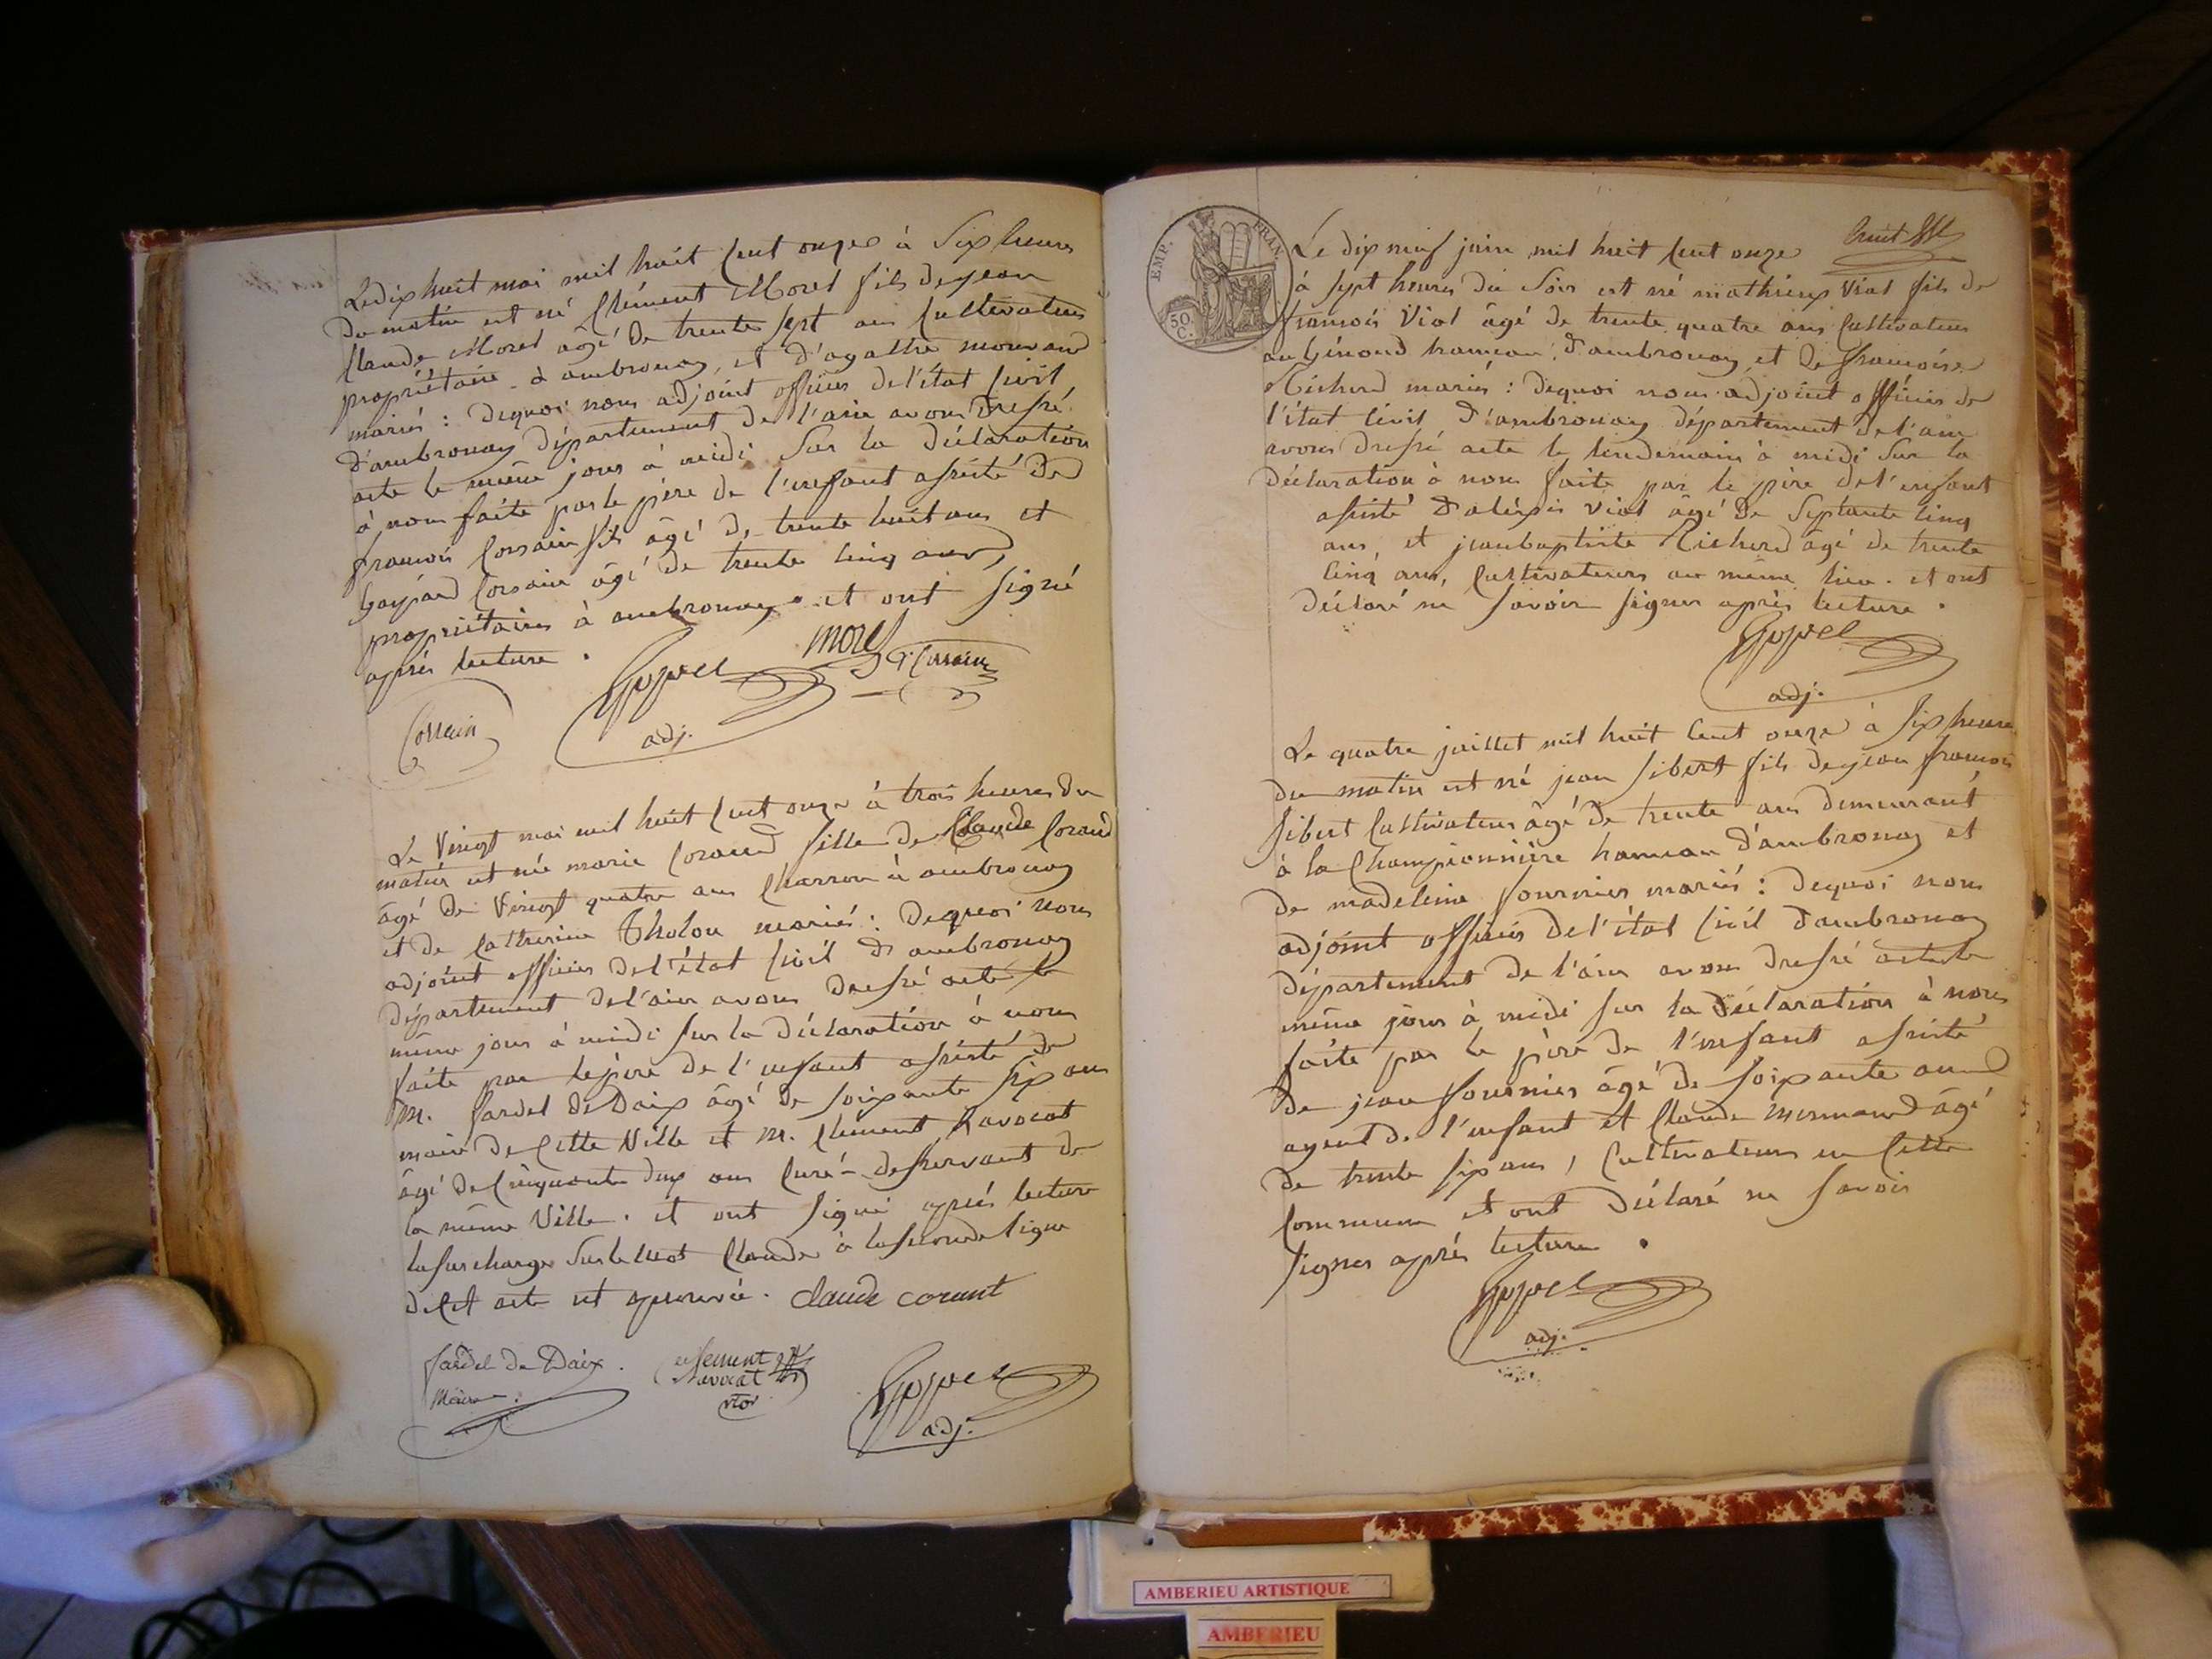 Le dix huit mai mil huit cent onze à six heures
du matin est né Clément Morel fils de jean
Claude Morel âgé de trente sept ans Cultivateur
propriétaire à ambronay, et d'agathe
mariés : dequoi nous adjoint officier de l'état Civil
d'ambronay département de l'ain avons dressé
acte le même jour à midi sur la déclaration
à nous faite par le père de l'enfant assisté de
françois Corsain fils âgé de trente huit ans et
Gaspard Corsain âgé de trente cinq ans,
propriétaires à ambronay. et ont signé
après lecture.
morel
Corsain
adj.
Le vingt mai mil huit cent onze à trois heures du
matin est née marie Corand fille de Claude Corand
âgé de vingt quatre ans Charron à ambronay
et de Catherine Tholon mariés : dequoi nous
adjoint officier de l'état Civil d'ambronay
département de l'ain avons dressé acte le
même jour à midi sur la déclaration à nous
faite par le père de l'enfant assisté de
M. Sardel de Daix âgé de soixante six ans
maire de Cette Ville et M. Clément Lavocat
âgé de Cinquante deux ans Curé-desservant de
la même Ville. et ont signé après lecture
la surcharge sur le mot Claude à la seconde ligne
de Cet acte est approuvée. claude corant
Sardel de Daix.
Maire.
clement
lavocat
adj.
EMP. FRAN.
50
C.
Le dix neuf juin mil huit cent onze
huit
à sept heures du Soir est né mathieux Vial fils de
françois Vial âgé de trente quatre ans Cultivateur
au Génoud hameau d'ambronay et de françoise
Richerd mariés : dequoi nous adjoint officier de
l'état Civil d'ambronay département de l'ain
avons dressé acte le lendemain à midi sur la
déclaration à nous faite par le père de l'enfant
assisté d'aléxis Vial âgé de septante cinq
ans, et jeanbaptiste Richerd âgé de trente
cinq ans, Cultivateurs au même lieu. et ont
déclaré ne savoir signer après lecture.
adj.
Le quatre juillet mil huit Cent onze à six heures
du matin est né jean Sibert fils de jean françois
Sibert Cultivateur âgé de trente ans demeurant
à la Championnière hameau d'ambronay et
de madeleine fournier mariés : dequoi nous
adjoint officier de l'état Civil d'ambronay
département de l'ain avons dressé acte le
même jour à midi sur la déclaration à nous
faite par le père de l'enfant assisté
de jean fournier âgé de soixante ans
ayeul de l'enfant et Claude mermand âgé
de trente six ans, Cultivateurs en Cette
Commune et ont déclaré ne savoir
signer après lecture.
adj.
AMBERIEU ARTISTIQUE
AMBERIEU